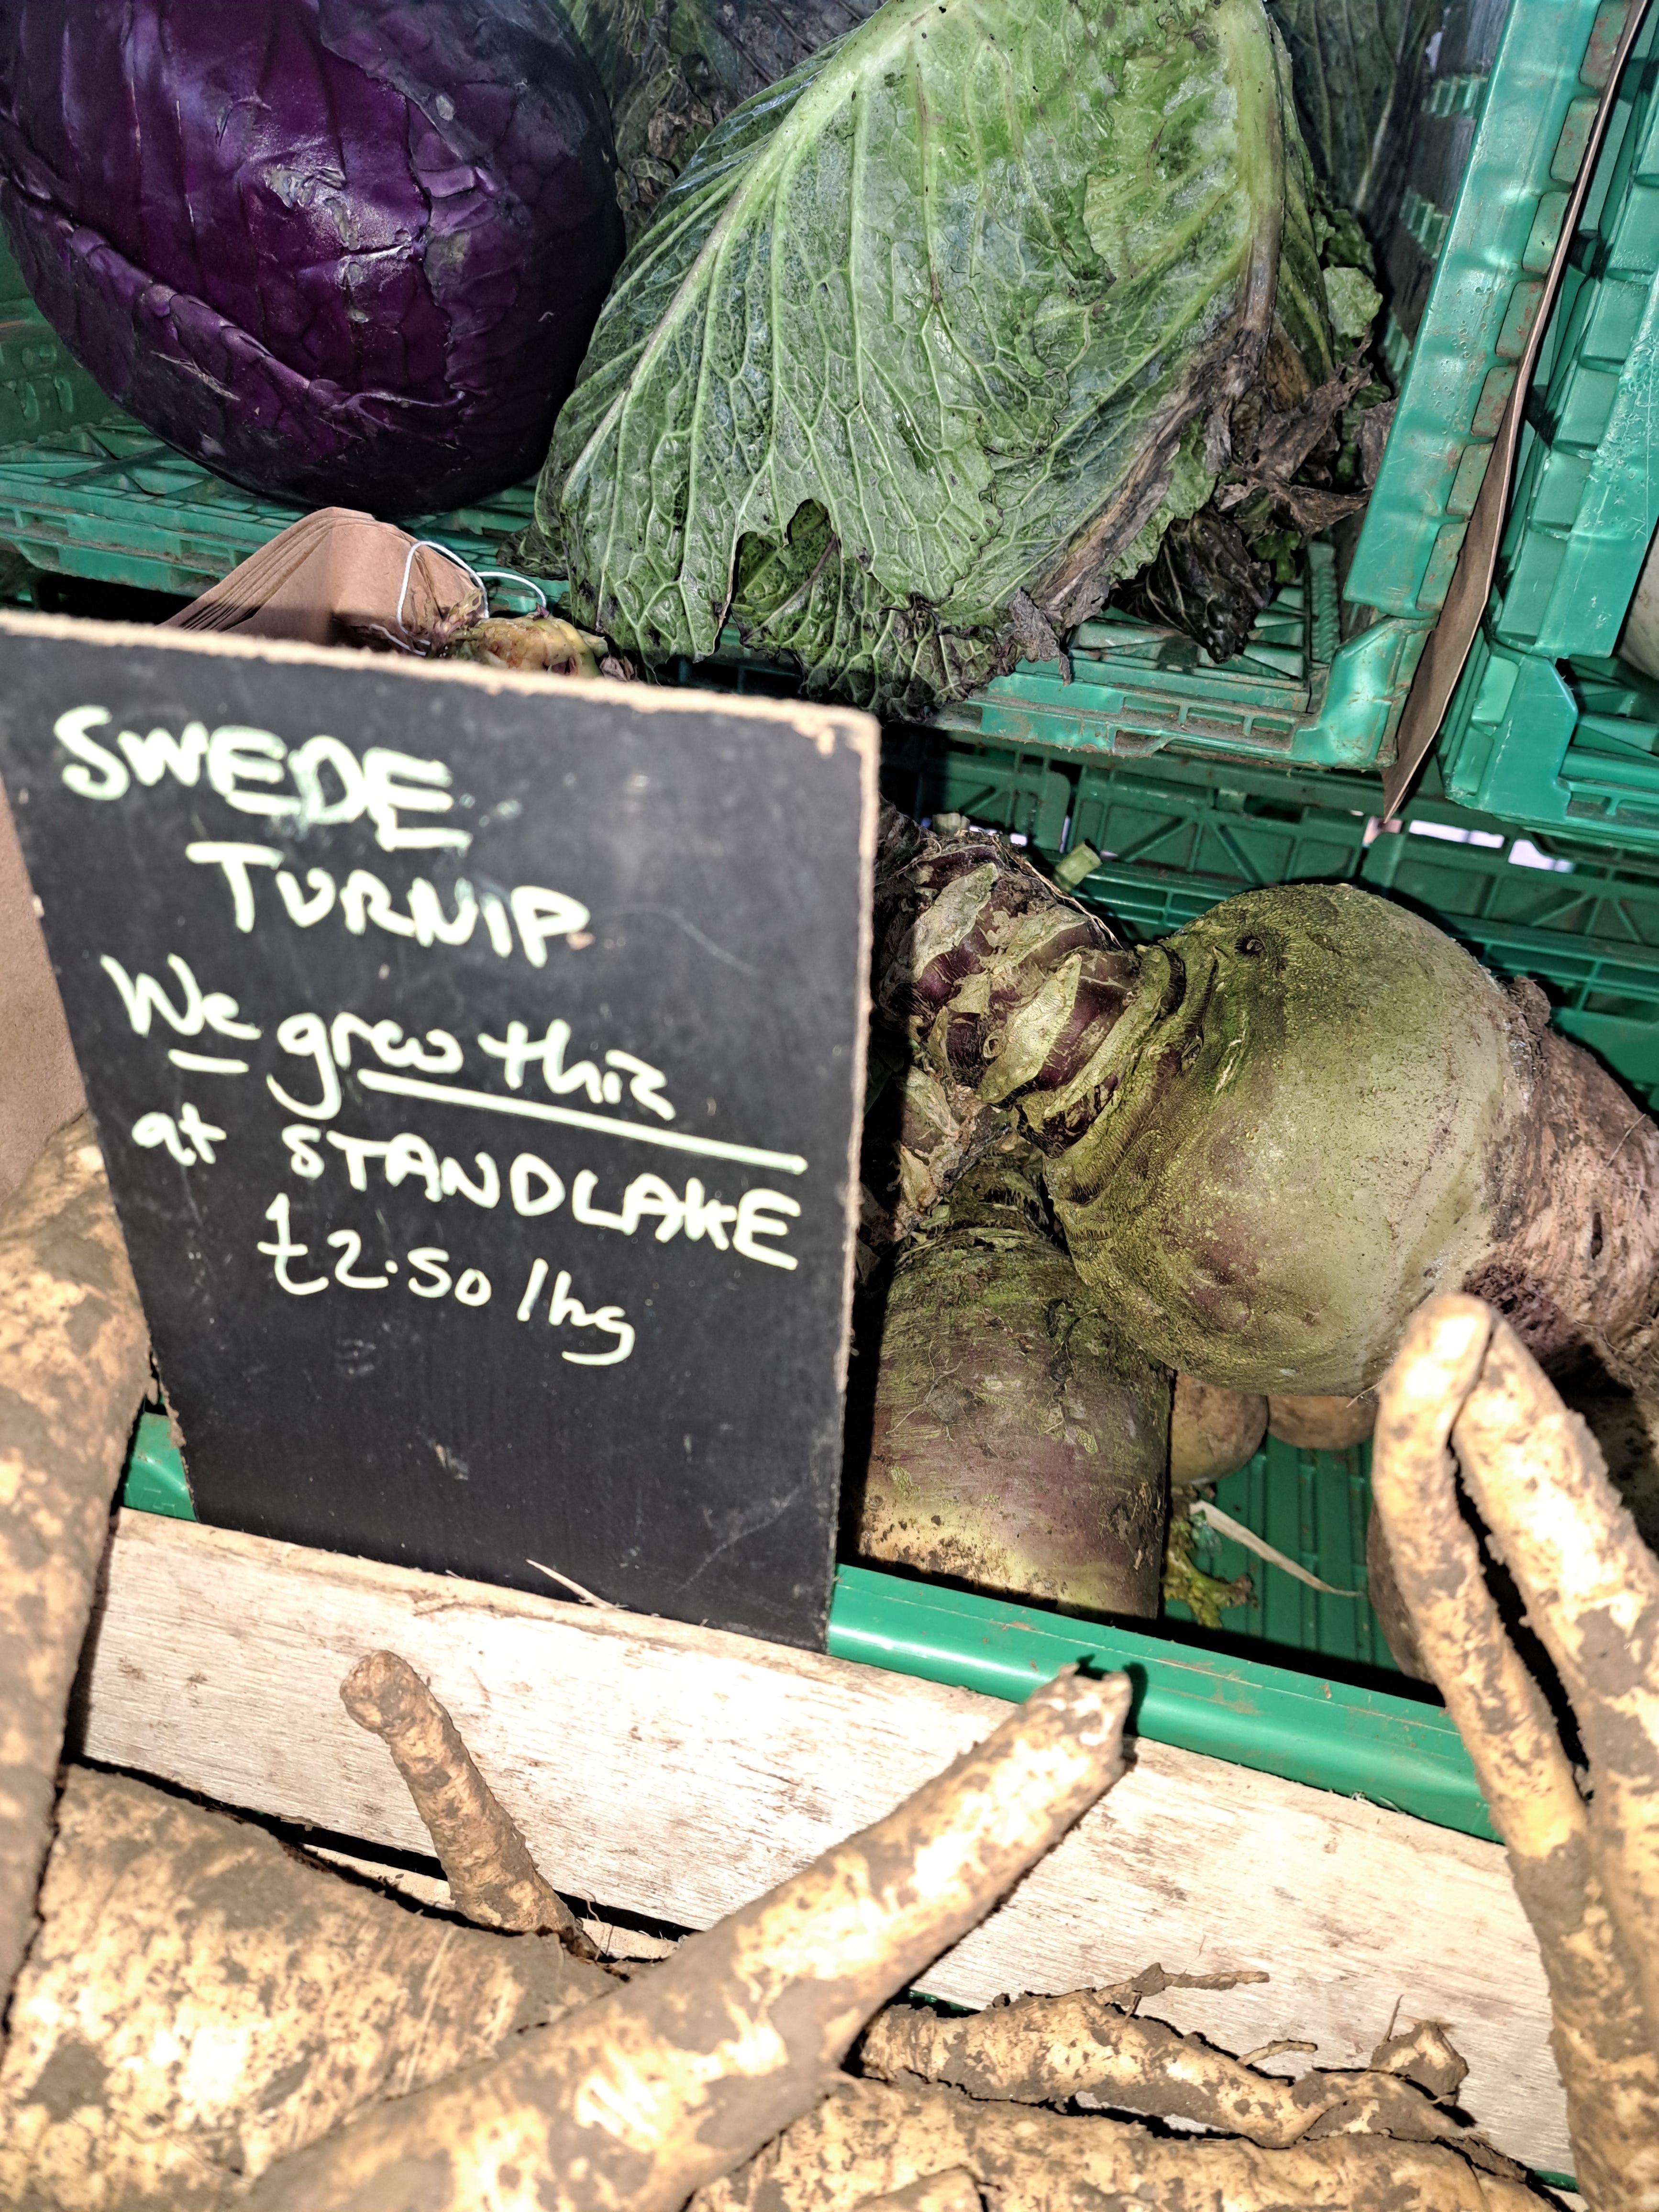 SWEDE
TURNIP
We grow this
at STANDLAKE
£2.50/kg